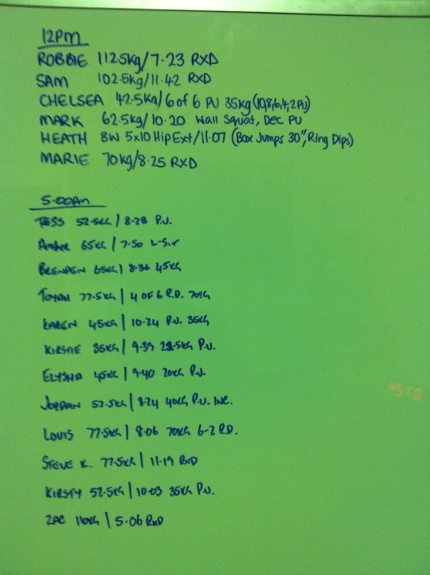 12PM
ROBBIE 112.5kg/7.23 RXD
SAM 102.5kg/11.42 RXD
CHELSEA 42.5kg/6 of 6 PU 35kg (10,8,6,4,2 PU)
MARK 62.5kg/10.20 Wall Squat, Dec PU
HEATH BW 5x10 HipExt/11.07 (Box Jumps 30", Ring Dips)
MARIE 70kg/8.25 RXD
5.00am
TESS 52.5KG / 8.28 P.U.
65KG / 7.50
BRENDEN 65KG / 8.36 45KG
77.5KG / 4 OF 6 R.D. 70KG
KAREN 45KG / 10.24 P.U. 35KG
KIRSTIE 35KG / 9.39 22.5KG P.U.
ELYSHA 45KG / 9.40 20KG P.U.
JORDAN 52.5KG / 8.24 40KG P.U. INC.
LOUIS 77.5KG / 8.06 70KG 6-2 R.D.
STEVE K. 77.5KG / 11.19 RXD
KIRSTY 52.5KG / 10.03 35KG P.U.
ZAC 110KG / 5.06 RXD